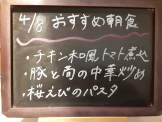 4/8 おすすめ朝食
・チキン和風トマト煮込
・豚と筍の中華炒め
・桜えびのパスタ